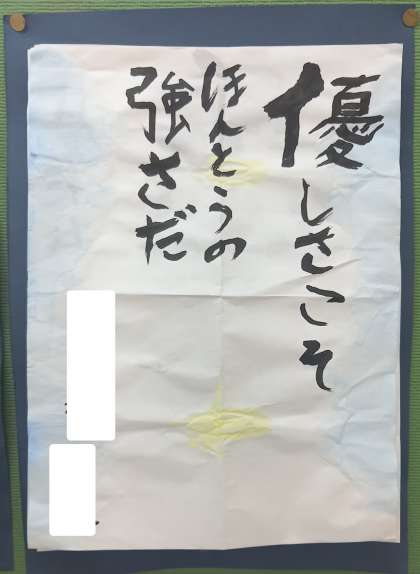 優しさこそ
ほんとうの
強さだ